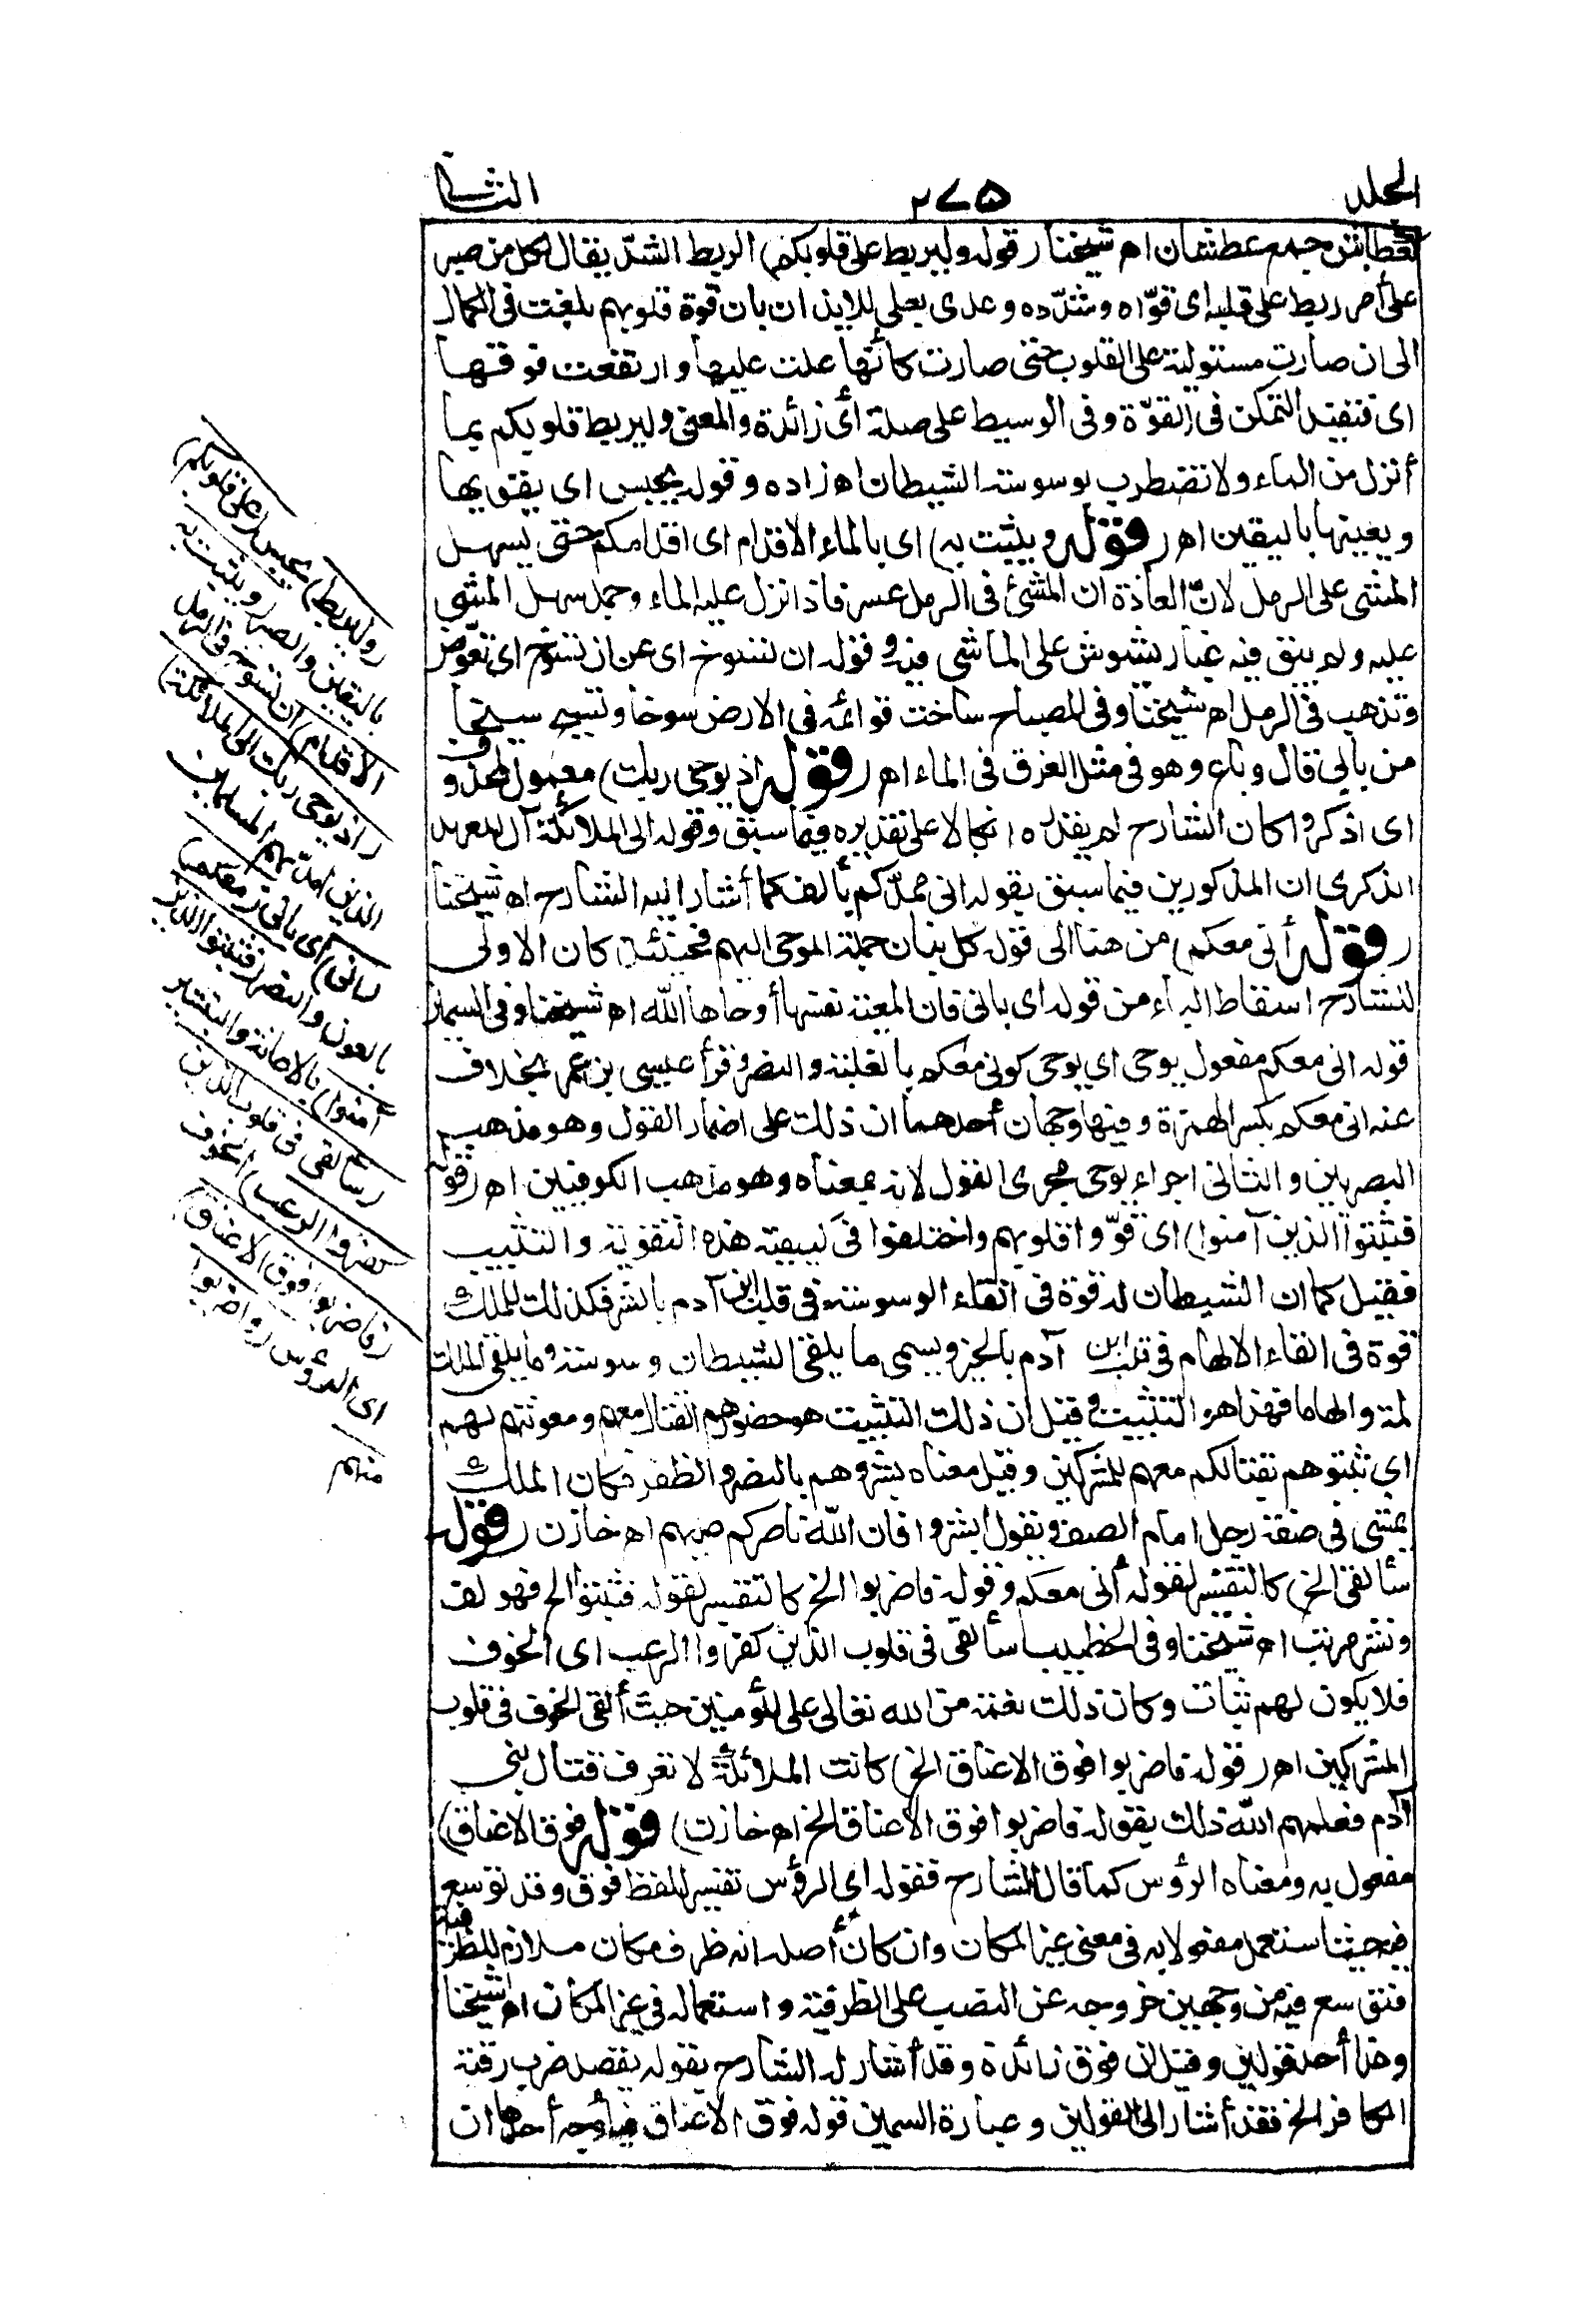 الجلد ٢٧٥ الثانى
لعطاش جمع عطشان اه شيخنا (قوله وليربط على قلوبكم) الربط الشد يقال لكل من صبر
على أمر ربط على قلبه اى قوّاه وشدّده وعدى بعلى للايذان بان قوة قلوبهم بلغت فى الكمال
الى ان صارت مستولية على القلوب حتى صارت كأنّها علت عليها وارتفعت فوقها
اى تفيد التمكن فى القوّة وفى الوسيط على صلة أى زائدة والمعنى وليربط قلوبكم بما
أنزل من الماء ولا تضطرب بوسوسة الشيطان اه زاده وقوله يحبس اى يقويها
ويعينها باليقين اه (قوله ويثبت به) اى بالماء الاقدام اى اقدامكم حتى يسهل
المشى على الرمل لانّ العادة ان المشى فى الرمل عسر فاذا نزل عليه الماء وجمد سهل المشى
عليه ولم يبق فيه غبار يشوش على الماشى فيه وقوله ان تسوخ اى عن ان تسوخ اى تغوص
وتذهب فى الرمل اه شيخنا وفى المصباح ساخت قوائمه فى الارض سوخا وتسيخ سيخا
من بابى قال وباع وهو فى مثل الغرق فى الماء اه (قوله اذ يوحى ربك) معمول لمحذوف
اى اذكر وكان الشارح لم يقدره اتكالا على تقديره فيما سبق وقوله الى الملائكة أل للعهد
الذكرى ان المذكورين فيما سبق بقوله انى ممدّكم بألف كما أشار اليه الشارح اه شيخنا
(قوله أنى معكم) من هنا الى قوله كل بنان جملة الموحى اليهم فحينئذ كان الاولى
للشارح اسقاط الباء من قوله اى بانى فان المعية نفسها أوحاها الله اه شيخنا وفى السمين
قوله انى معكم مفعول يوحى اي يوحى كونى معكم بالغلبة والنصر وقرأ عيسى بن عمر بخلاف
عنه انى معكم بكسر الهمزة وفيها وجهان أحدهما ان ذلك على اضمار القول وهو مذهب
البصريين والثانى اجراء يوحى مجرى القول لانه بمعناه وهو مذهب الكوفيين اه (قوله
فثبتوا الذين آمنوا) اى قوّوا قلوبهم واختلفوا فى كيفية هذه التقوية والتثبيت
فقيل كما ان الشيطان له قوة فى القاء الوسوسة فى قلب ابن آدم بالشر فكذلك للملك
قوة فى القاء الالهام فى قلب ابن آدم بالخير ويسمى ما يلقى الشيطان وسوسة وما يلقى الملك
لمة والهاما فهذا هو التثبيت وقيل ان ذلك التثبيت هو حضورهم القتال معهم ومعونتهم لهم
اي ثبتوهم بقتالكم معهم للمشركين وقيل معناه بشروهم بالنصر والظفر فكان الملك
يمشى فى صفة رجل امام الصف ويقول ابشروا فان الله ناصركم عليهم اه خازن (قوله
سألقى الخ) كالتفسير لقوله أنى معكم وقوله فاضربوا الخ كالتفسير لقوله فثبتوا الخ فهو لف
ونشر مرتب اه شيخنا وفى الخطيب سألقى فى قلوب الذين كفروا الرعب اى الخوف
فلا يكون لهم ثبات وكان ذلك نعمة من الله تعالى على المؤمنين حيث ألقى الخوف فى قلوب
المشركين اه (قوله فاضربوا فوق الاعناق الخ) كانت الملائكة لا تعرف قتال بنى
آدم فعلمهم الله ذلك بقوله فاضربوا فوق الاعناق الخ اه خازن) قوله (فوق الاعناق)
مفعول به ومعناه الرؤس كما قال الشارح فقوله اى الرؤس تفسير للفظ فوق وقد توسع
فيه حيث استعمل مفعولا به فى معنى غير المكان وان كان أصله انه ظرف مكان ملازم للظرفية
فتوسع فيه من وجهين خروجه عن النصب على الظرفية واستعماله فى غير المكان اه شيخنا
وهذا أحد قولين وقيل ان فوق زائدة وقد أشار له الشارح بقوله يقصد ضرب رقبة
الكافر الخ فقد أشار الى القولين وعبارة السمين قوله فوق الاعناق فيه أوجه أحدها ان
(وليربط) يحبس (على قلوبكم)
باليقين والصبر (ويثبت به
الاقدام) ان تسوخ فى الرمل
(اذ يوحى ربك الى الملائكة)
الذين امدّ بهم المسلمين
(انى) اى بانى (معكم)
بالعون والنصر (فثبتوا الذين
آمنوا) بالاعانة والتبشير
(سألقى فى قلوب الذين
كفروا الرعب) الخوف
(فاضربوا فوق الاعناق)
اى الرؤس (واضربوا
منهم